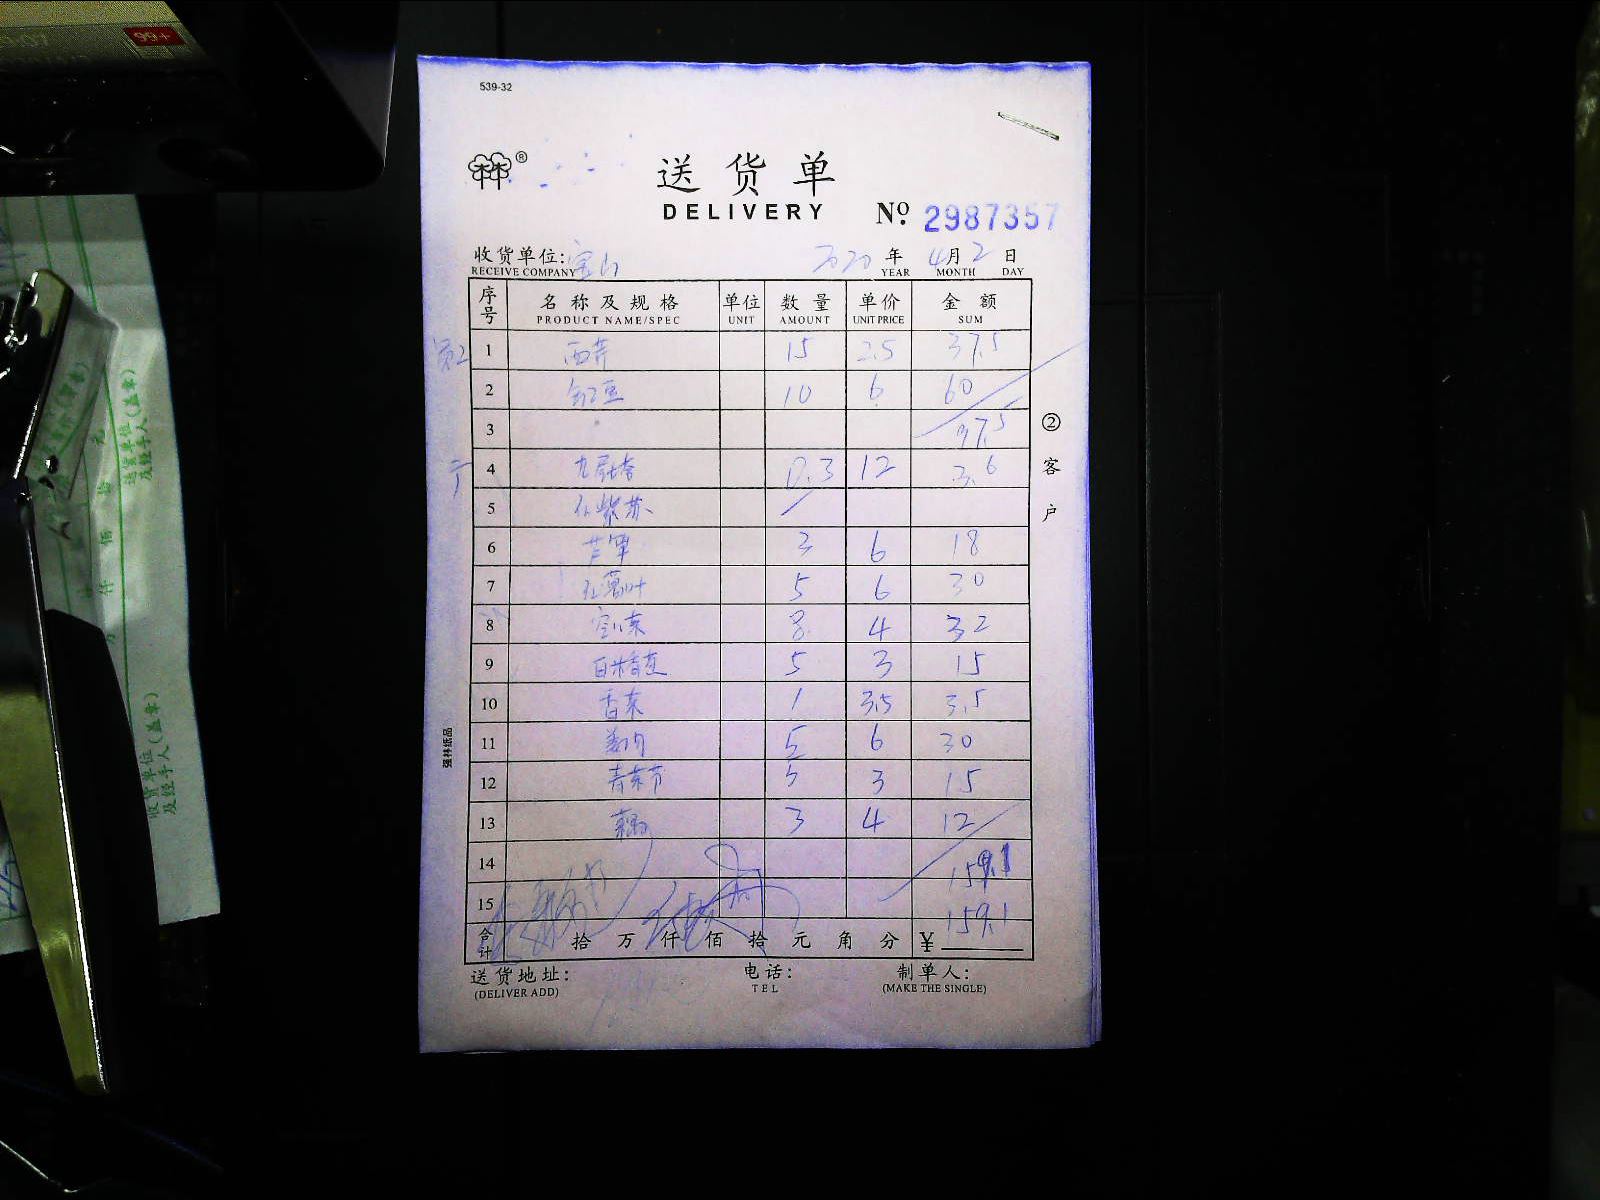 99+
539-32
送货单
DELIVERY
№ 2987357
收货单位: 宝山 2020 年 4月 2 日
RECEIVE COMPANY YEAR MONTH DAY
序号 名称及规格 单位 数量 单价 金额
PRODUCT NAME/SPEC UNIT AMOUNT UNIT PRICE SUM
1 西芹 15 2.5 37.5
2 豆 10 6 60
3 97.5
4 九层塔 0.3 12 3.6
5 紫苏
6 芦笋 3 6 18
7 红薯叶 5 6 30
8 空心菜 8 4 32
9 白米苋 5 3 15
10 香菜 1 3.5 3.5
11 5 6 30
12 5 3 15
13 3 4 12
14 159.1
15
合计 拾 万 仟 佰 拾 元 角 分 ¥ 159.1
送货地址: 电话: 制单人:
(DELIVER ADD) TEL (MAKE THE SINGLE)
②客户
强林纸品
收货单位及经手人(盖章)
送货单位及经手人(盖章)